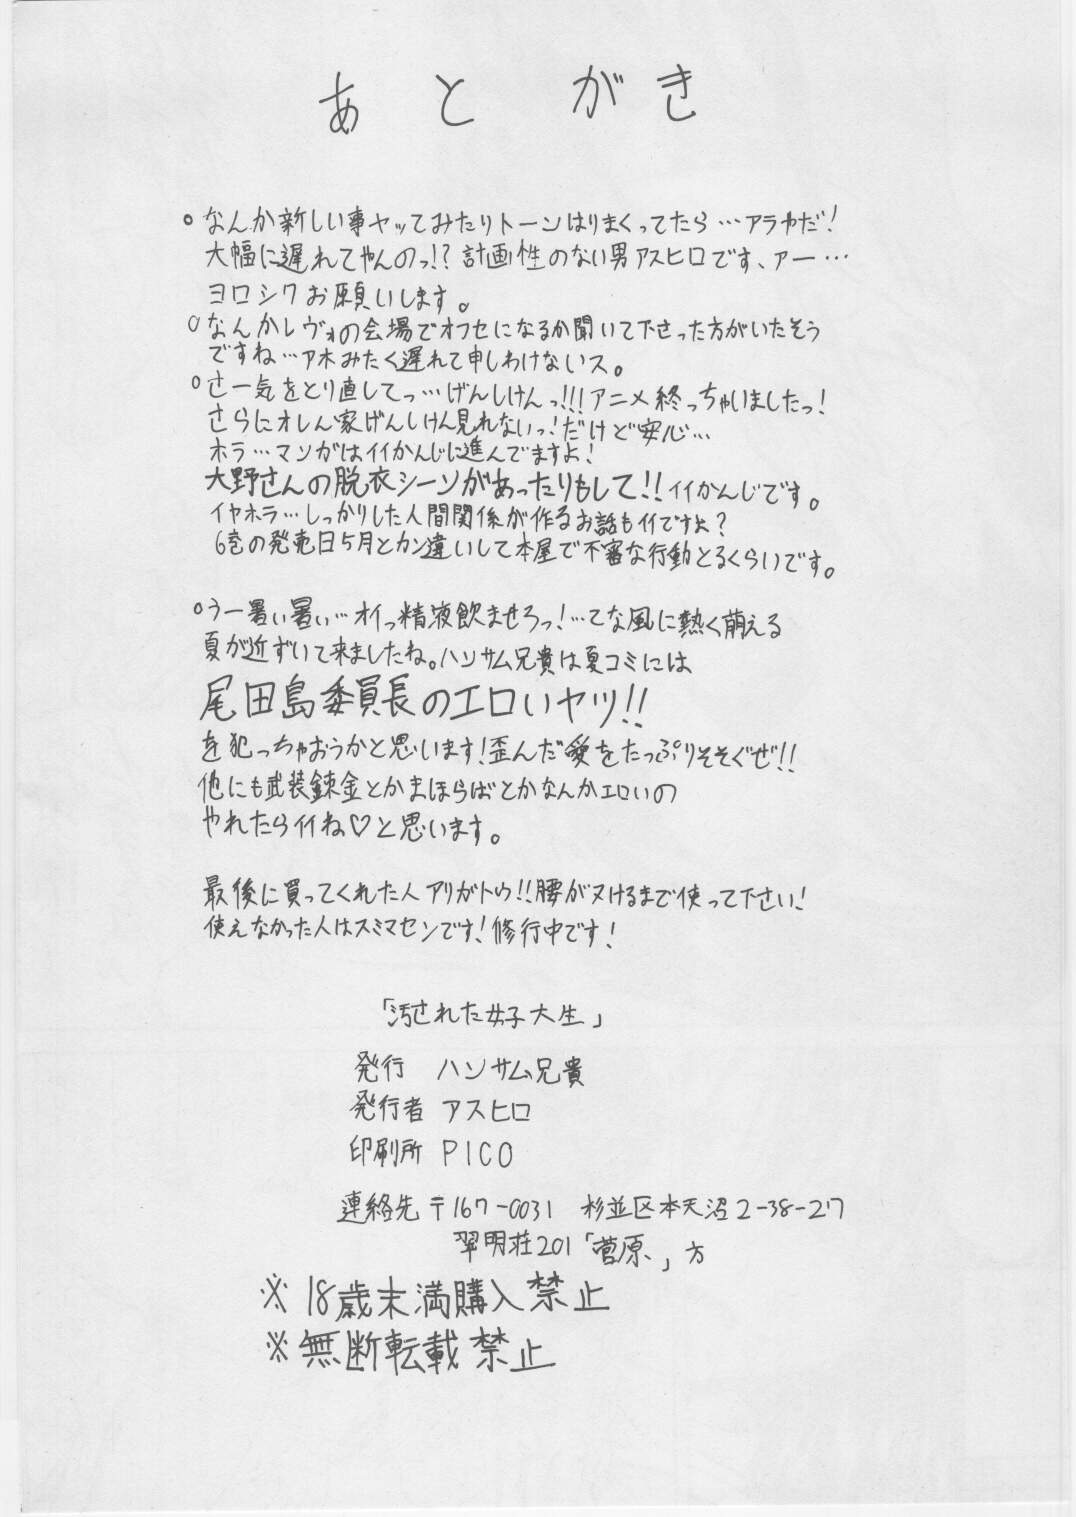 あとがき
○なんか新しい事ヤッてみたりトーンはりまくってたら…アラヤだ!
大幅に遅れてやんのっ!?計画性のない男アスヒロです、アー…
ヨロシクお願いします。
○なんかレヴォの会場でオフセになるか聞いて下さった方がいたそう
ですね…アホみたく遅れて申しわけないス。
○さー気をとり直してっ…げんしけんっ!!!アニメ終っちゃいましたっ!
さらにオレん家げんしけん見れないっ!だけど安心…
ホラ…マンガはイイかんじに進んでますよ!
大野さんの脱衣シーンがあったりもして!!イイかんじです。
イヤホラ…しっかりした人間関係が作るお話もイイですよ?
6巻の発売日5月とカン違いして本屋で不審な行動とるくらいです。
○うー暑ぃ暑ぃ…オイっ精液飲ませろっ!…てな風に熱く萌える
夏が近ずいて来ましたね。ハンサム兄貴は夏コミには
尾田島委員長のエロいヤツ!!
を犯っちゃおうかと思います!歪んだ愛をたっぷりそそぐぜ!!
他にも武装錬金とかまほらばとかなんかエロいの
やれたらイイね♡と思います。
最後に買ってくれた人アリガトウ!!腰がヌけるまで使って下さい!
使えなかった人はスミマセンです!修行中です!
「汚された女子大生」
発行 ハンサム兄貴
発行者 アスヒロ
印刷所 PICO
連絡先〒167-0031 杉並区本天沼2-38-27
翠明荘201「菅原、」方
※18歳未満購入禁止
※無断転載禁止